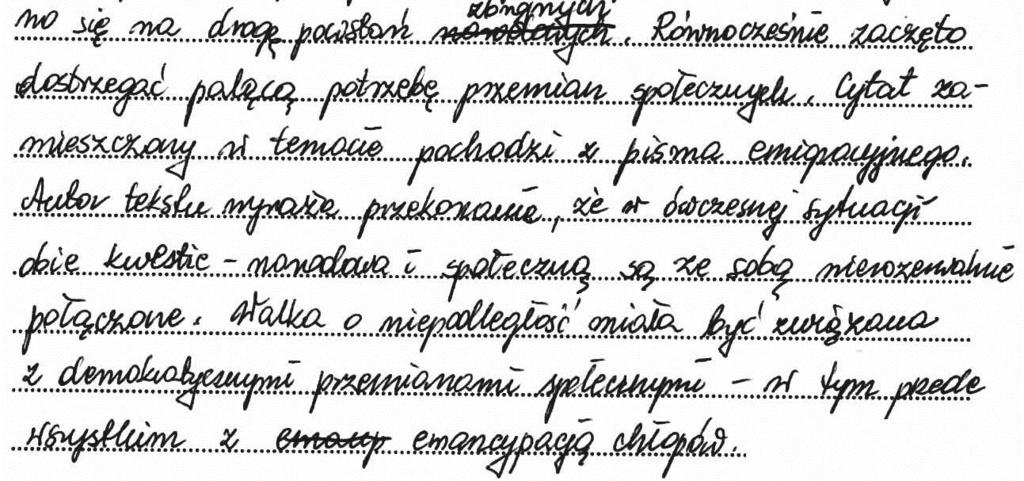 no się na drogę powstań zbrojnych. Równocześnie zaczęto
dostrzegać palącą potrzebę przemian społecznych. Cytat za-
mieszczony w temacie pochodzi z pisma emigracyjnego.
Autor tekstu wyraża przekonanie, że w ówczesnej sytuacji
obie kwestie - narodowa i społeczną są ze sobą nierozerwalnie
połączone. Walka o niepodległość miała być związana
z demokratycznymi przemianami społecznymi - w tym przede
wszystkim z emancypacją chłopów.